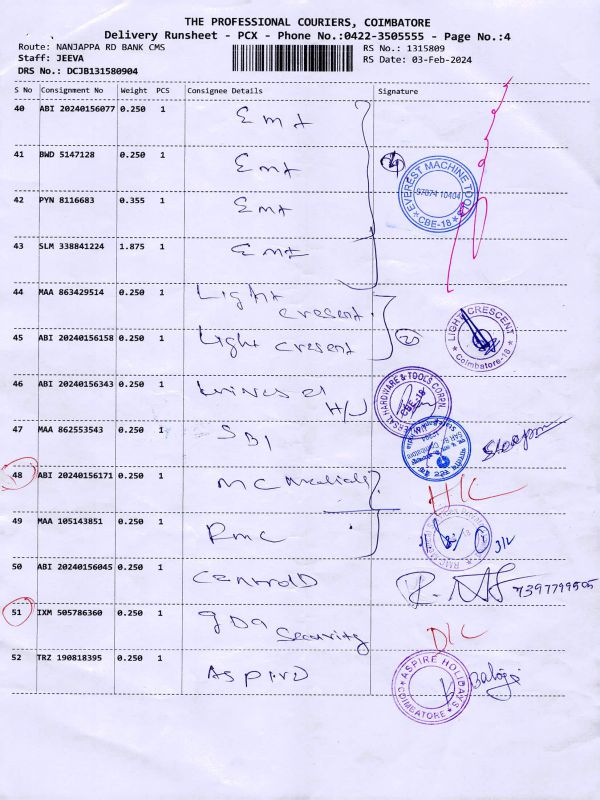 THE PROFESSIONAL COURIERS, COIMBATORE
Delivery Runsheet - PCX - Phone No.:0422-3505555 - Page No.:4
Route: NANJAPPA RD BANK CMS RS No.: 1315809
Staff: JEEVA RS Date: 03-Feb-2024
DRS No.: DCJB131580904
S No Consignment No Weight PCS Consignee Details Signature
40 ABI 20240156077 0.250 1 Emt
41 BWD 5147128 0.250 1 Emt
EVEREST MACHINE TOOLS
97874 10404
CBE-18
42 PYN 8116683 0.355 1 Emt
43 SLM 338841224 1.875 1 Emt
44 MAA 863429514 0.250 1 Light cresent
45 ABI 20240156158 0.250 1 Light cresent
LIGHT CRESCENT
Coimbatore-18
46 ABI 20240156343 0.250 1 H/W
HARDWARE & TOOLS CORPN.
CBE-18
47 MAA 862553543 0.250 1 SBI
48 ABI 20240156171 0.250 1 MC Medicals
49 MAA 105143851 0.250 1 RMC
50 ABI 20240156045 0.250 1
51 IXM 505786360 0.250 1 Security
D/C
52 TRZ 190818395 0.250 1
ASPIRE HOLIDAYS
COIMBATORE
Balaji